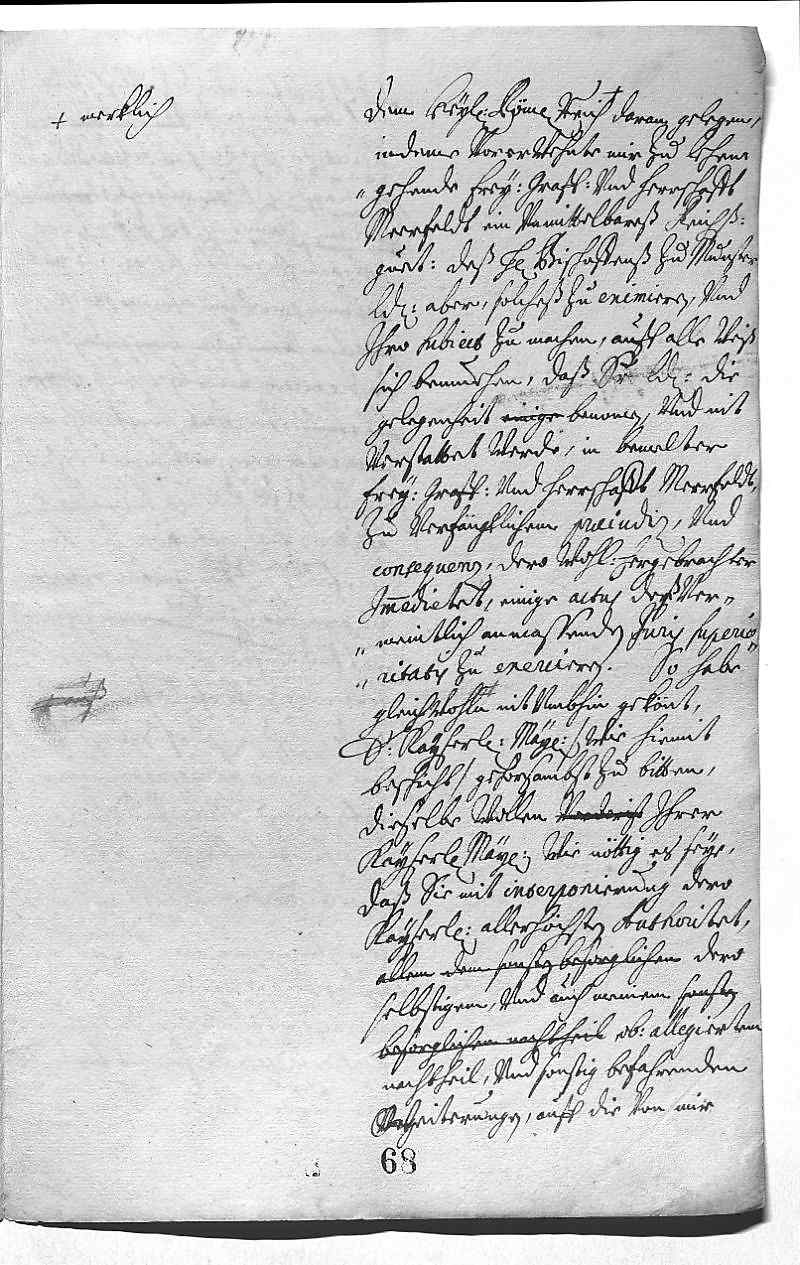 + merklich
dem Heyl: Röm: Reich + daran gelegen,
indeme Vorerwehnte mir zu Lehen
„gehende Frey: Graff: Vnd Herrschafft
Meerfeldt ein Vnmittelbareß Reichß:
guet: deß H: Bischoffenß zu Munster
Ld: aber, solcheß zu eximieren, Vnd
Ihro subiect zu machen, auff alle Weiß
sich bemuehen, daß Sr Ld: die
gelegenheit einige benomen, Vnd nit
Verstattet werde, in bemelter
Frey: Graff: Vnd Herrschafft Meerfeldt,
zu Verfänglichem praeiudiz, Vnd
consequenz, dero Wohl: hergebrachter
Immedietet, einige actus deß Ver„
„meintlich anmassenden Juris superio„
„ritatis zu exercieren. So habe
gleichwohln nit Vmbhin gekönt,
E: Kayserl: Maye: / wie hiemit
beschicht / gehorsambst zu bitten,
dieselbe wollen Ihrer
Kayserl Maye: wie nöttig es seye,
daß Sie mit interponierung dero
Kayserl: allerhöchsten Authoritet,
allem dem sonsten besorglichen dero
selbstigem, Vnd auch meinem sonsten
besorglichem nachtheil ob: allegiertem
nachtheil, Vnd sonstig befahrenden
Weiterungen, auff die Von mir
68